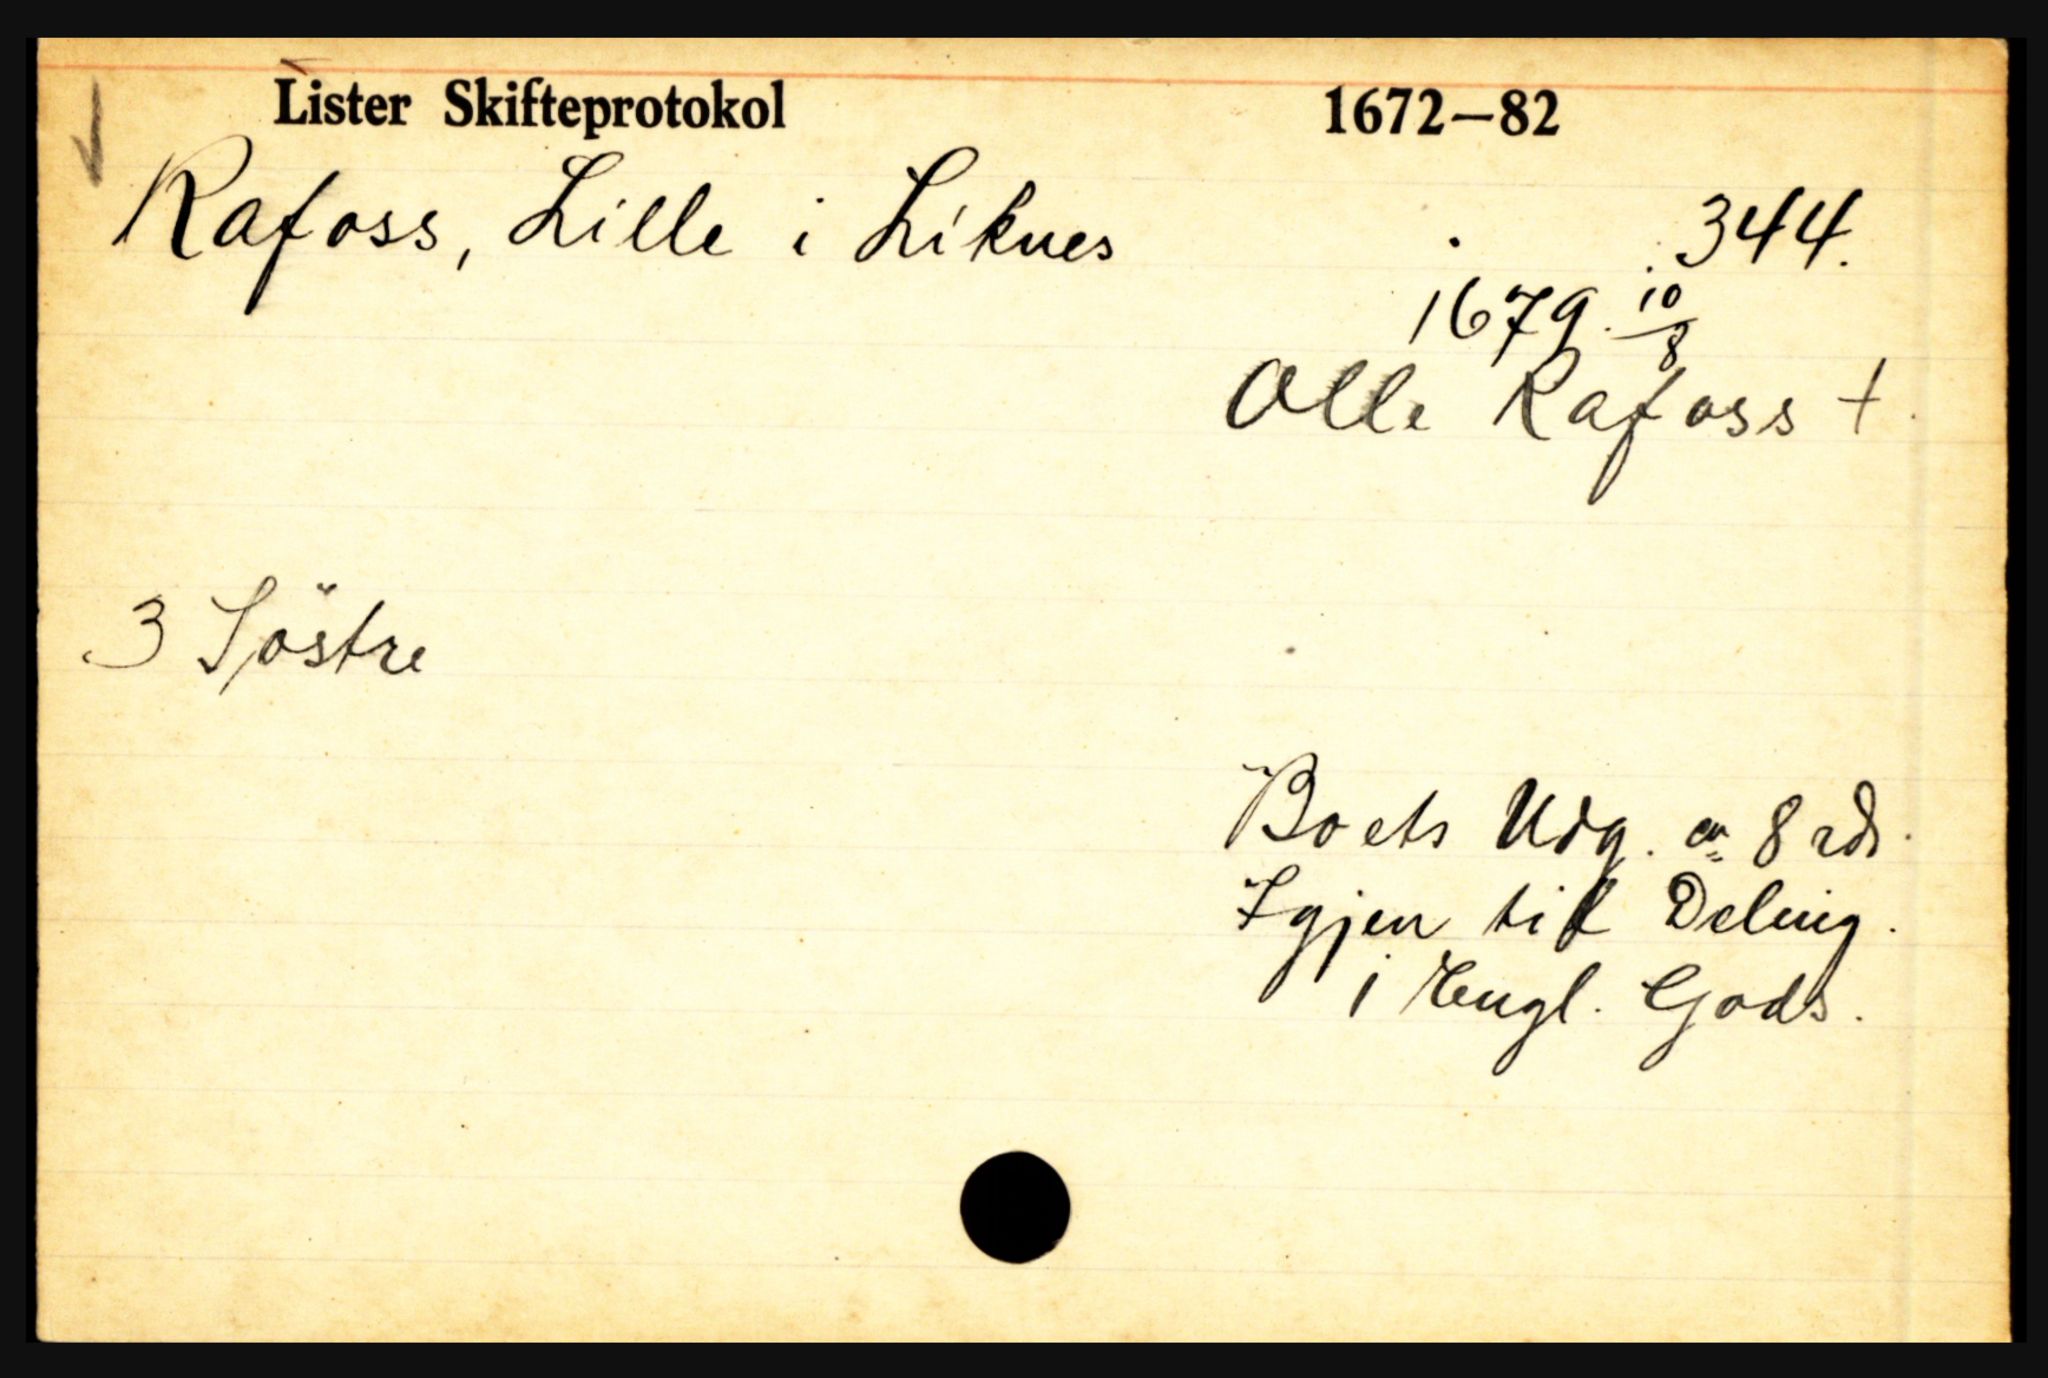 Lister Skifteprotokol 1672–82
Rafoss, Lille i Liknes
344.
1679. 10/8
Olle Rafoss †.
3 Söstre
Boets Udg. er 8 rdr.
Igjen til Deling.
i Engl. Gods.